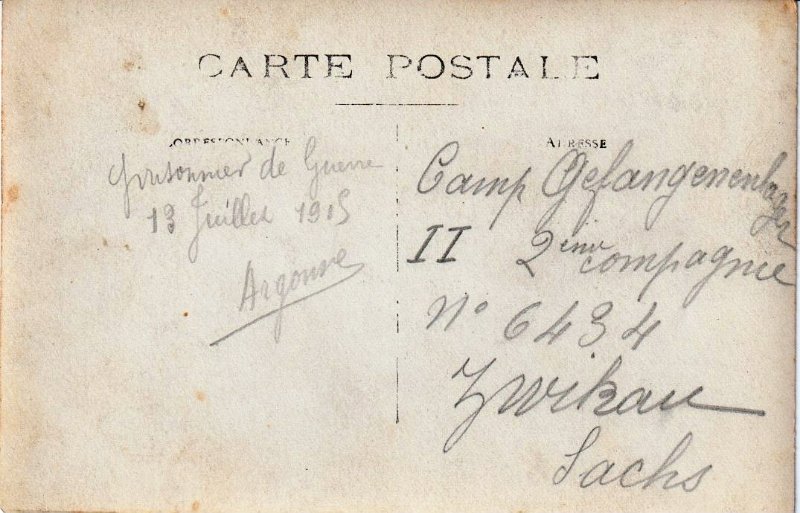 CARTE POSTALE
CORRESPONDANCE
prisonnier de Guerre
13 Juillet 1915
Argonne
ADRESSE
Camp Gefangenenlager
II 2ème compagnie
N° 6434
Zwikau
Sachs